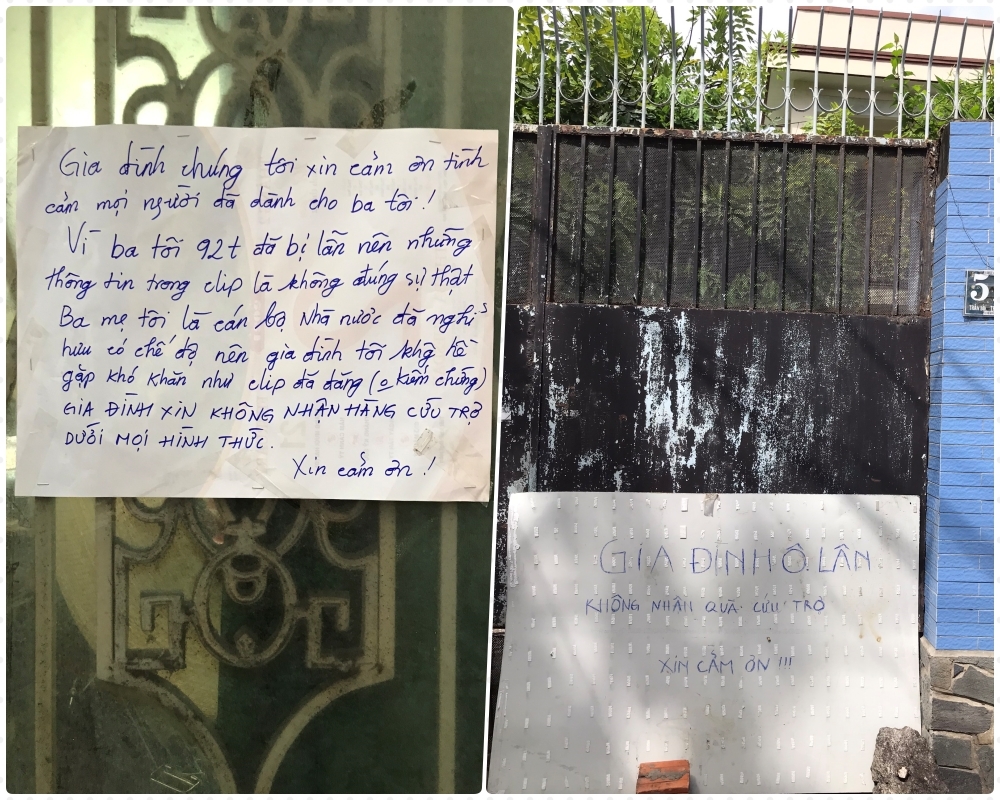 Gia đình chúng tôi xin cảm ơn tình
cảm mọi người đã dành cho ba tôi!
Vì ba tôi 92t đã bị lẫn nên những
thông tin trong clip là không đúng sự thật
Ba mẹ tôi là cán bộ Nhà nước đã nghỉ
hưu có chế độ nên gia đình tôi khg hề
gặp khó khăn như clip đã đăng (o kiểm chứng)
GIA ĐÌNH XIN KHÔNG NHẬN HÀNG CỨU TRỢ
DƯỚI MỌI HÌNH THỨC.
Xin cảm ơn!
5
GIA ĐÌNH Ô LÂN
KHÔNG NHẬN QUÀ CỨU TRỢ
XIN CẢM ƠN !!!